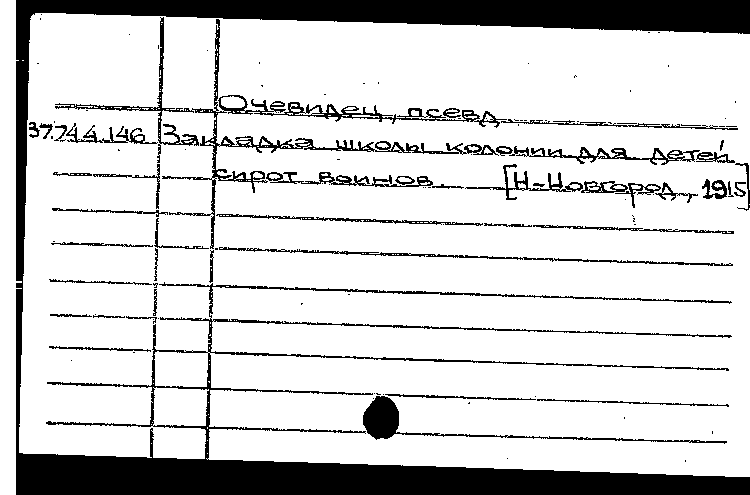 Очевидец, псевд.
37.744.146 Закладка школы колонии для детей
сирот воинов. [Н-Новгород, 1915]